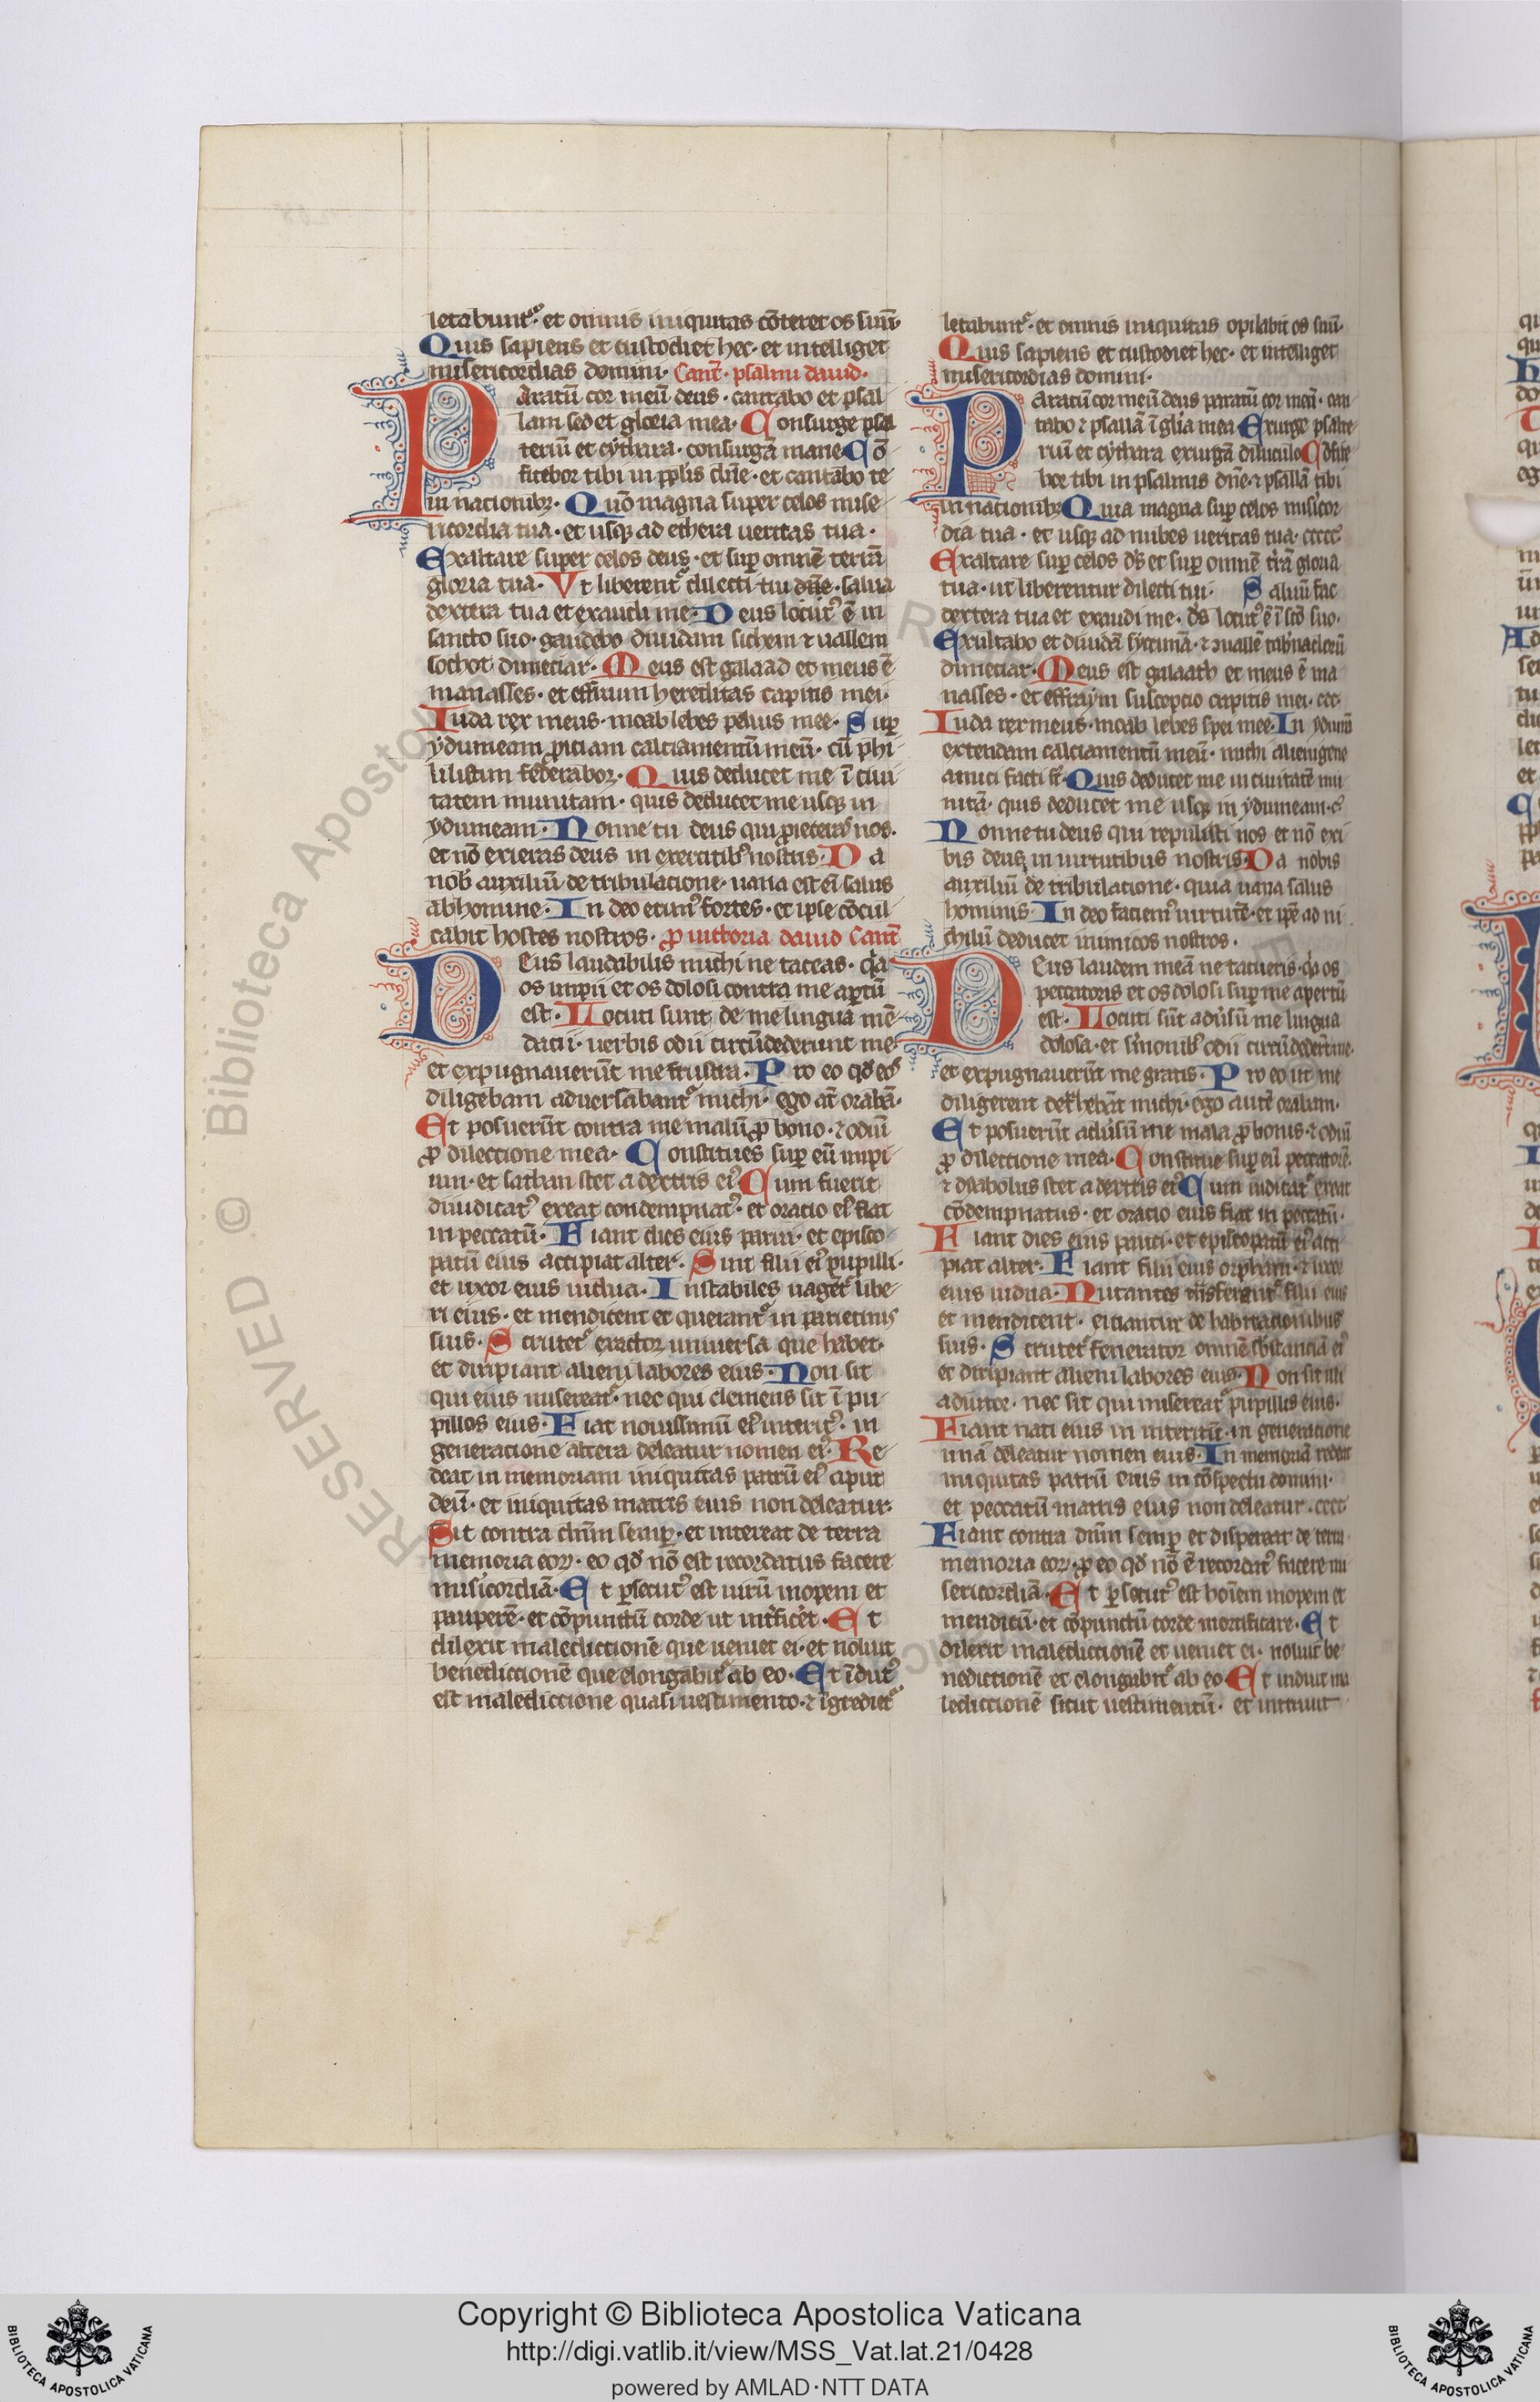 letabunt᷑· et omnis iniquitas cōteret os suū·
Quis sapiens et custodiet hec· et intelliget
misericordias domini· Cant᷑· psalmi dauid·
Paratū cor meū deus· cantabo et psal
lam sed et gloria mea· Consurge psal
teriū et cythara· consurgā mane Cō
fitebor tibi in pplis dn̄e· et cantabo te
in nacionibꝫ· Quō magna super celos mise
ricordia tua· et usqꝫ ad ethera ueritas tua·
Exaltare super celos deus· et suꝑ omnē terrā
gloria tua· Vt liberent᷑ dilecti tui dn̄e· salua
dextera tua et exaudi me· Deus locutꝰ ē in
sancto suo· gaudebo diuidam sichem ⁊ uallem
sochot dimeciar· Meus est galaad et meus ē
manasses· et effraim hereditas capitis mei·
Iuda rex meus· moab lebes peluis mee· Suꝑ
ydumeam ꝓiciam calciamentū meū· cū phi
listim federabor· Quis deducet me ī ciui
tatem munitam· quis deducet me usqꝫ in
ydumeam· Nonne tu deus qui ꝓieceras nos·
et nō exieras deus in exercitibꝰ nostris· Da
nob̄ auxiliū de tribulacione· uana est eī salus
ab homine· In deo erimꝰ fortes· et ipse cōcul
cabit hostes nostros· ꝓ uictoria dauid Cant᷑
Deus laudabilis michi ne taceas· qa
os impii et os dolosi contra me aꝑtū
est· Locuti sunt de me lingua mē
dacii· uerbis odii circūdederunt me
et expugnauerūt me frustra· Pro eo qd̄ eos
diligebam aduersabant᷑ michi· ego at̄ orabā·
Et posuerūt contra me malū ꝓ bono· ⁊ odiū
ꝓ dilectione mea· Constitues suꝑ eū impi
um· et sathan stet a dextris eiꝰ Cum fuerit
diiudicatꝰ exeat condempnatꝰ· et oracio eiꝰ fiat
in peccatū· Fiant dies eius parui· et episco
patū eius accipiat alter· Sint filii eiꝰ pupilli·
et uxor eius uidua· Instabiles uagēt᷑ libe
ri eius· et mendicent et querant᷑ in parietinis
suis· Scrutet᷑ exactor uniuersa que habet·
et diripiant alieni labores eius· Non sit
qui eius misereat᷑· nec qui clemens sit ī pu
pillos eius· Fiat nouissimū eiꝰ interitꝰ· in
generacione altera deleatur nomen eiꝰ· Re
deat in memoriam iniquitas patrū eiꝰ aput
deū· et iniquitas matris eius non deleatur·
Sit contra dn̄m semꝑ· et intereat de terra
memoria eoꝝ· eo qd̄ nō est recordatus facere
misicordiā· Et ꝑsecutꝰ est uirū inopem et
pauperē· et cōpunctū corde ut int̄ficet· Et
dilexit maledictionē que ueniet ei· et noluit
benedictionē que elongabit᷑ ab eo· Et īdutꝰ
est maledictione quasi uestimento· ⁊ īgrediet᷑
letabunt᷑· et omnis iniquitas opilabit os suū·
Quis sapiens et custodiet hec· et intelliget
misericordias domini·
Paratū cor meū deus paratū cor meū· can
tabo ⁊ psallā ī gl̄ia mea Exurge psalte
riū et cythara exurgā diluculo Cōfite
bor tibi in psalmis dn̄e· ⁊ psallā tibi
in nacionibꝫ Quia magna suꝑ celos misicor
dia tua· et usqꝫ ad nubes ueritas tua·
Exaltare suꝑ celos ds̄ et suꝑ omnē t̄rā gloria
tua· ut liberentur dilecti tui· Saluū fac
dextera tua et exaudi me· ds̄ locutꝰ ē ī sc̄o suo·
Exultabo et diuidā sycimā· ⁊ ꝯuallē tab̄naclorū
dimeciar· Meus est galaath et meus ē ma
nasses· et effraym suscepcio capitis mei·
Iuda rex meus· moab lebes spei mee· In ydumeā
extendam calciamentū meū· michi alienigene
amici facti st̄· Quis deducet me in ciuitatē mu
nitā· quis deducet me usqꝫ in ydumeam·
Nonne tu deus qui repulisti nos et nō exi
bis deus in uirtutibus nostris Da nobis
auxiliū de tribulacione· quia uana salus
hominis· In deo faciemꝰ uirtutē· et ip̄e ad ni
chilū deducet inimicos nostros·
Deus laudem meā ne tacueris· qa os
peccatoris et os dolosi suꝑ me apertū
est· Locuti sūt adūsū me lingua
dolosa· et s̄monibꝰ odii circūdedert̄ me·
et expugnauerūt me gratis· Pro eo ut me
diligerent det̄hebāt michi· ego autē orabam·
Et posuerūt adūsū me mala ꝓ bonis· ⁊ odiū
ꝓ dilectione mea· Constitue suꝑ eū peccatorē·
⁊ dyabolus stet a dextris eiꝰ Cum iudicat᷑ exeat
cōdempnatus· et oracio eius fiat in peccatū·
Fiant dies eius pauci· et episcopatū eiꝰ acci
piat alter· Fiant filii eius orphani· ⁊ uxor
eius uidua· Nutantes trāsferant᷑ filii eius
et mendicent· eiciantur de habitacionibus
suis· Scrutet᷑ fenerator omnē sbstanciā eiꝰ
et diripiant alieni labores eius· Non sit illi
adiutor· nec sit qui misereat᷑ pupillis eius·
Fiant nati eius in interitū· in generacione
una deleatur nomen eius· In memoriā redeat
iniquitas patrū eius in cōspectu domini·
et peccatū matris eius non deleatur·
Fiant contra dn̄m semꝑ et dispereat de terra
memoria eoꝝ· ꝓ eo qd̄ nō ē recordatꝰ facere mi
sericordiā· Et ꝑsecutꝰ est hoīem inopem et
mendicū· et cōpunctū corde mortificare· Et
dilexit maledictionē et ueniet ei· noluit be
nedictionē et elongabit᷑ ab eo Et induit ma
ledictionē sicut uestimentū· et intrauit
RESERVED © Biblioteca Apostolica
Copyright © Biblioteca Apostolica Vaticana
http://digi.vatlib.it/view/MSS_Vat.lat.21/0428
powered by AMLAD·NTT DATA
BIBLIOTECA APOSTOLICA VATICANA
BIBLIOTECA APOSTOLICA VATICANA